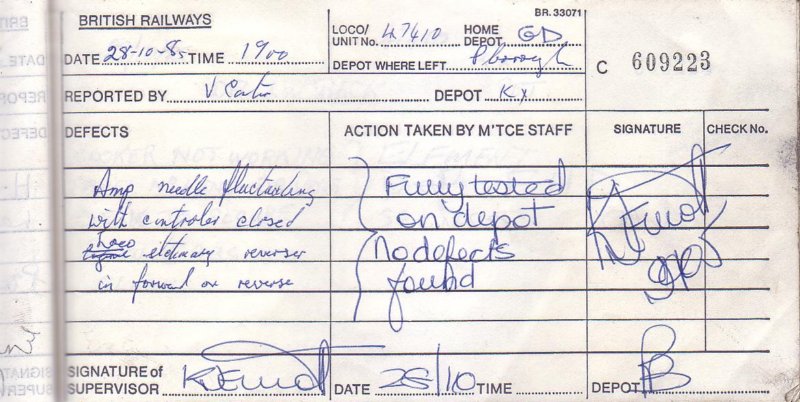 BR. 33071
BRITISH RAILWAYS
DATE 28-10-85 TIME 1900
LOCO/ UNIT No. 47410 HOME DEPOT GD
DEPOT WHERE LEFT P'borough
C 609223
REPORTED BY V Carter DEPOT Kx
DEFECTS ACTION TAKEN BY M'TCE STAFF SIGNATURE CHECK No.
Amp needle fluctuating Fully tested
with controler closed on depot
Loco stationary reverser No defects
in forward or reverse found
SIGNATURE of SUPERVISOR DATE 28/10 TIME DEPOT PB